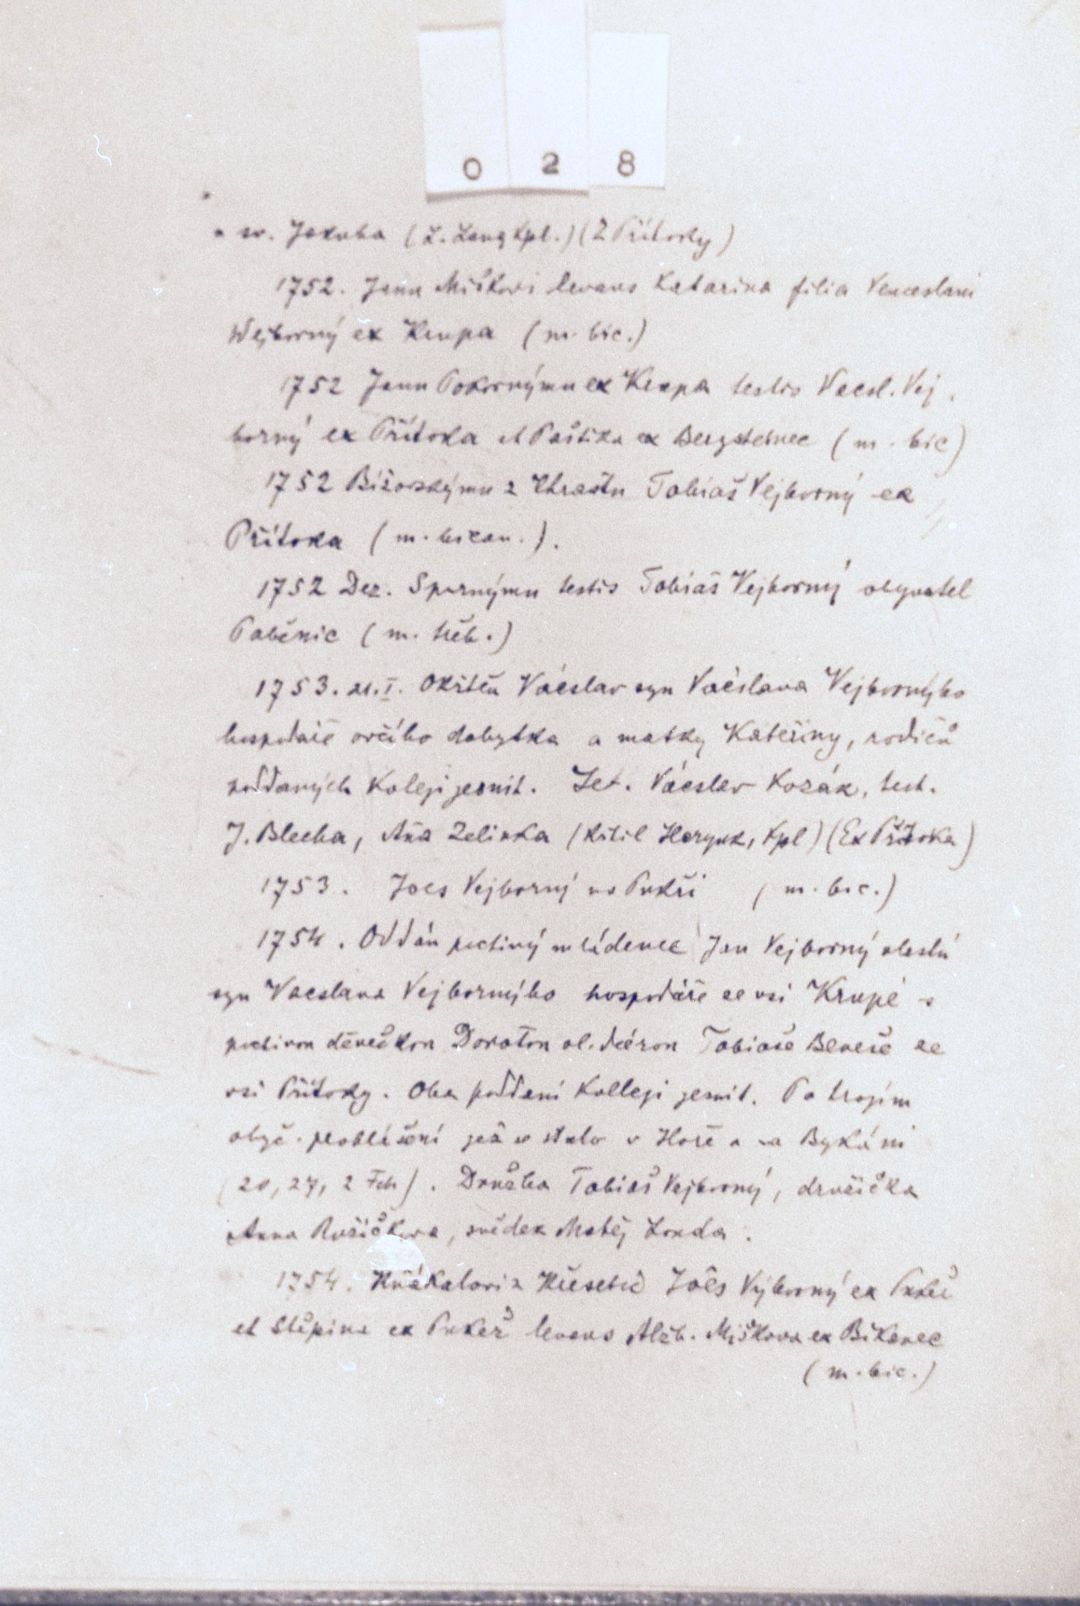 028
u sv. Jakuba (L. Lang kpl.) (Z Přítoky)
1752. Janu Miškovi levans Katarina filia Venceslavi
Wejborný ex Krupa (m. bic.)
1752 Janu Pokornýmu ex Krupa testis Vacsl. Vej
borný ex Přítoka et Paštika ex Bergstelnec (m. bic)
1752 Bižovskýmu z Chrastu Tobiaš Vejborný ex
Přítoka (m. bican.).
1752 Dez. Spornýmu testis Tobiáš Vejborný obyvatel
Paběnic (m. třeb.)
1753. 21.I. Okřtěn Václslav syn Váčslava Vejbornýho
hospodáře ovčího dobytka a matky Kateřiny, rodičů
poddaných koleji jesuit. Let. Vácslav Kozák, test.
J. Blecha, Aña Zelinka (Kitil Horynk, kpl) (Ex Přítoka)
1753. Joes Vejborný vs Pukři (m. bic.)
1754. Oddán poctivý mládenec Jan Vejborný vlastní
syn Vacslava Vejbornýho hospodáře ze vsi Krupé s
poctivou děvečkou Dorotou vl. dcérou Tobiaše Beneše ze
vsi Přítoky. Oba poddaní kolleji jesuit. Po trojím
obyč. prohlášení jež se stalo v Hoře a na Bykáni
(20, 27, 2 Feb). Družba Tobiáš Vejborný, družička
Anna Ružičkova, svědek Matěj Londa.
1754. Kuškalovi z Křesetic Joês Výborný ex Pukeř
et Štěpina ex Pukeř levans Alžb. Miškova ex Bikanec
(m. bic.)